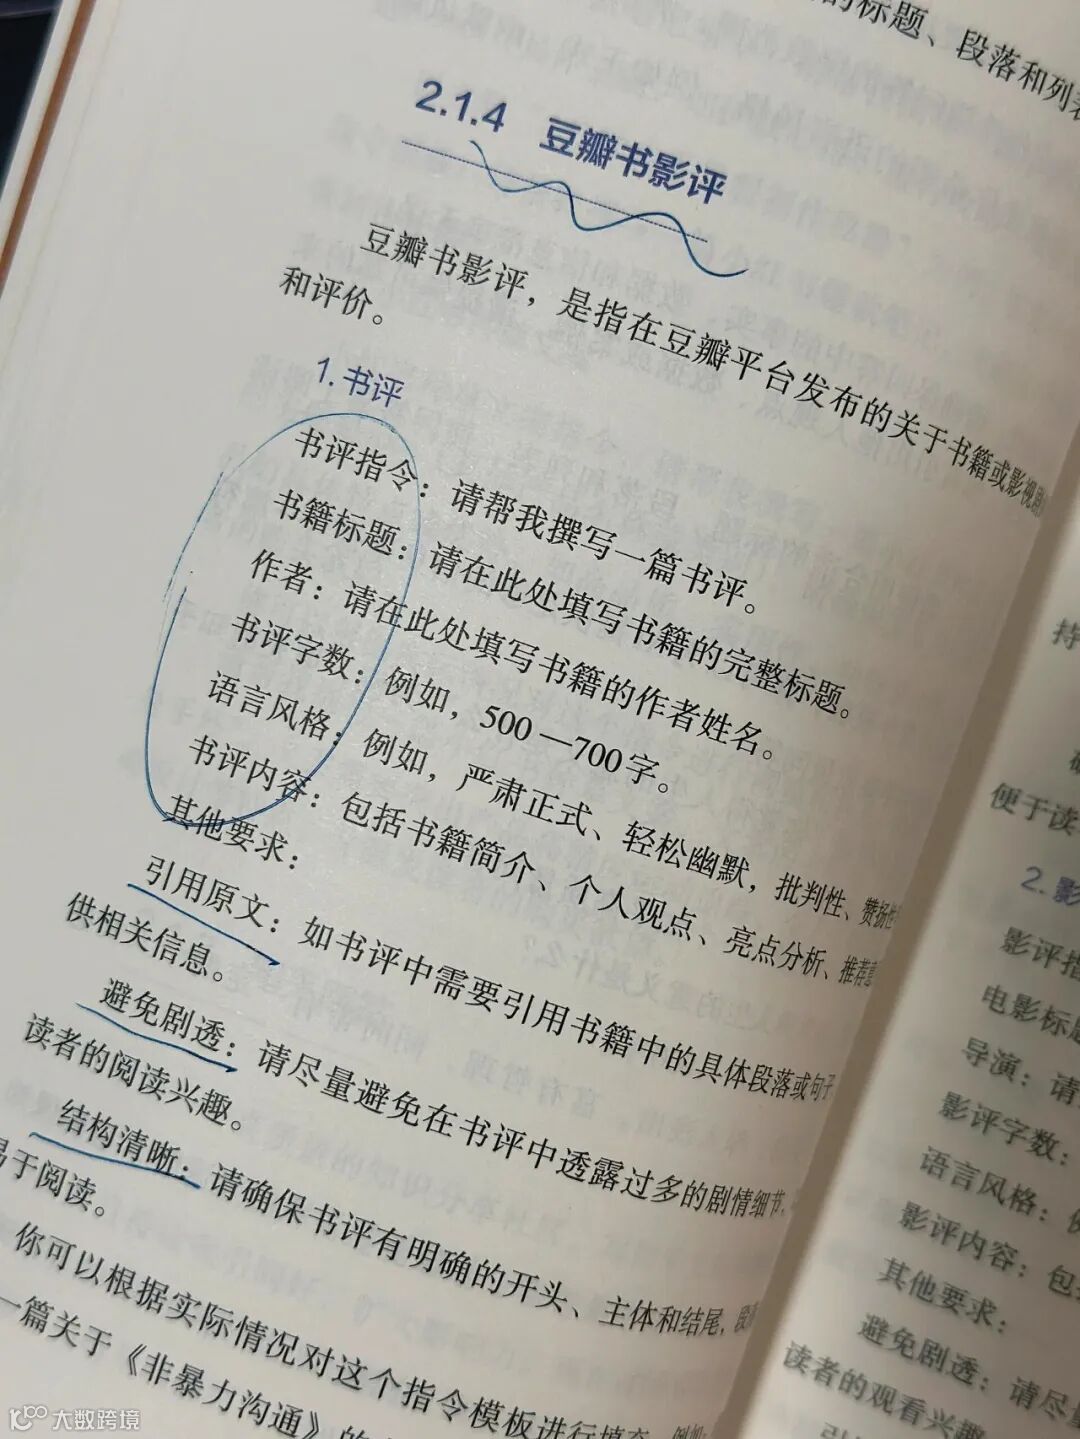 的标题、段落和列表
2.1.4 豆瓣书影评
豆瓣书影评，是指在豆瓣平台发布的关于书籍或影视剧
和评价。
1. 书评
书评指令：请帮我撰写一篇书评。
书籍标题：请在此处填写书籍的完整标题。
作者：请在此处填写书籍的作者姓名。
书评字数：例如，500—700字。
语言风格：例如，严肃正式、轻松幽默，批判性、赞扬性
书评内容：包括书籍简介、个人观点、亮点分析、推荐意
其他要求：
引用原文：如书评中需要引用书籍中的具体段落或句子
供相关信息。
避免剧透：请尽量避免在书评中透露过多的剧情细节，
读者的阅读兴趣。
结构清晰：请确保书评有明确的开头、主体和结尾，段
易于阅读。
你可以根据实际情况对这个指令模板进行填充，例如
一篇关于《非暴力沟通》的
持
便于读
2. 影
影评指
电影标题
导演：请
影评字数：
语言风格：例
影评内容：包
其他要求：
避免剧透：请尽量
读者的观看兴趣
大数跨境